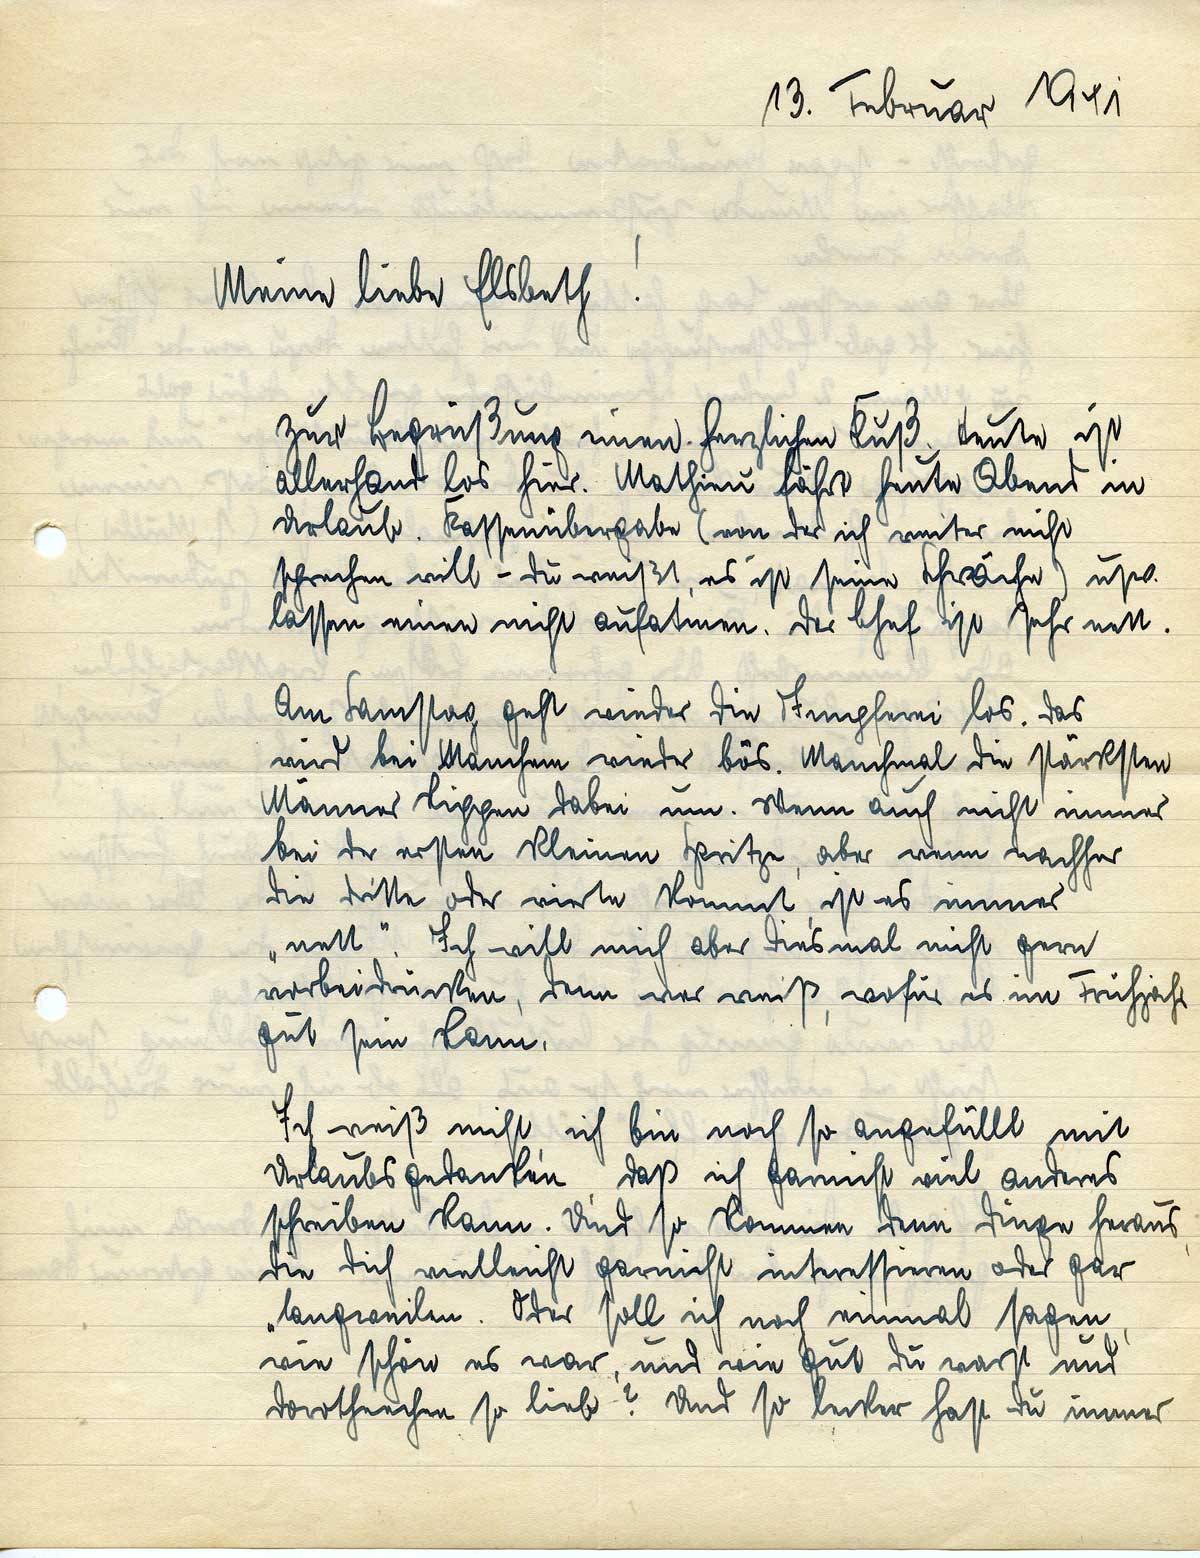 13. Februar 1941
Meine liebe Elsbeth!
Zur Begrüßung einen herzlichen Kuß. Heute ist
allerhand los hier. Mathieu fährt heute Abend in
Urlaub. Kassenübergabe (von der ich weiter nicht
sprechen will – du weißt, es ist seine Schwäche) usw.
lassen einen nicht aufatmen. Der Chef ist sehr nett.
Am Samstag geht wieder die Impferei los. Das
wird bei Manchem wieder bös. Manchmal die stärksten
Männer kippen dabei um. Wenn auch nicht immer
bei der ersten kleinen Spritze, aber wenn nachher
die dritte oder vierte kommt, ist es immer
„nett". Ich will mich aber diesmal nicht gern
vorbeidrücken, denn wer weiß, wofür es im Frühjahr
gut sein kann.
Ich weiß nicht ich bin noch so angefüllt mit
Urlaubsgedanken, daß ich garnicht viel anderes
schreiben kann. Und so kommen denn Dinge heraus,
die dich vielleicht garnicht interessieren oder gar
langweilen. Oder soll ich noch einmal sagen,
wie schön es war, und wie gut du warst und
Dorotheechen so lieb? Und so lecker hast du immer